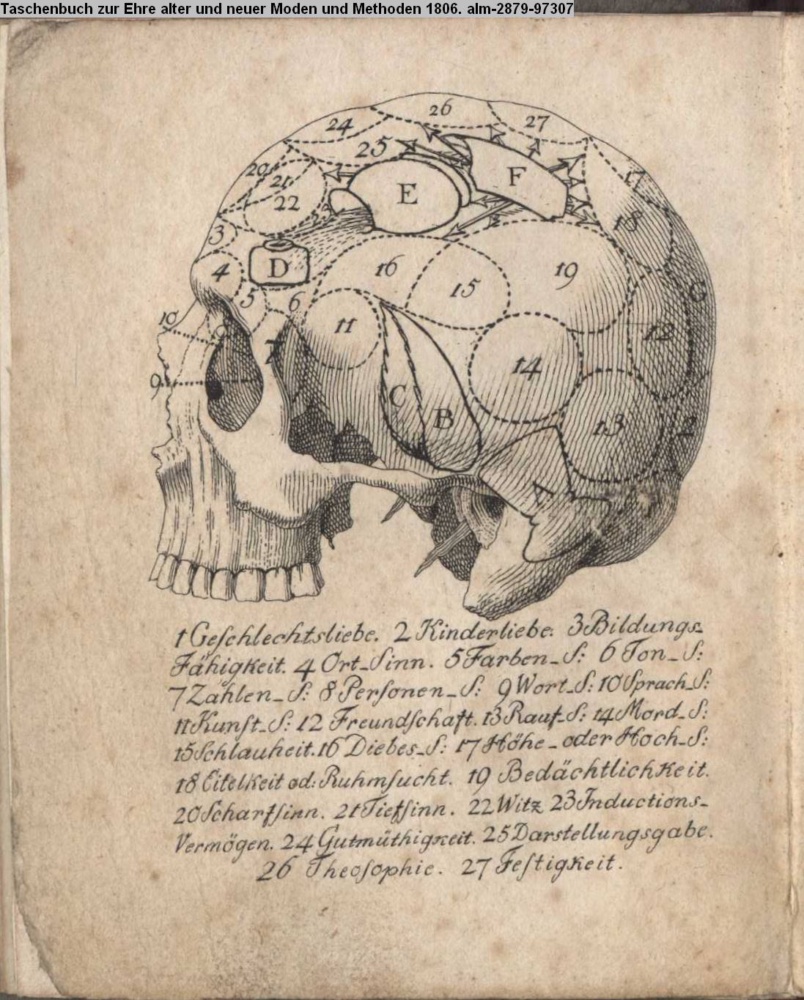 Taschenbuch zur Ehre alter und neuer Moden und Methoden 1806. alm-2879-97307
26
24
27
25
20
21
17
22
E
F
18
3
D
4
16
15
19
5
6
G
10
11
12
7
14
9
C
B
13
2
A
1 Geſchlechtsliebe. 2 Kinderliebe. 3 Bildungs-
Fähigkeit. 4 Ort-Sinn. 5 Farben-S: 6 Ton-S:
7 Zahlen-S: 8 Perſonen-S: 9 Wort-S: 10 Sprach-S:
11 Kunſt-S: 12 Freundſchaft. 13 Rauf-S: 14 Mord-S:
15 Schlauheit. 16 Diebes-S: 17 Höhe-oder Hoch-S:
18 Eitelkeit od: Ruhmſucht. 19 Bedächtlichkeit.
20 Scharfſinn. 21 Tiefſinn. 22 Witz 23 Inductions-
Vermögen. 24 Gutmüthigkeit. 25 Darstellungsgabe.
26 Theoſophie. 27 Feſtigkeit.